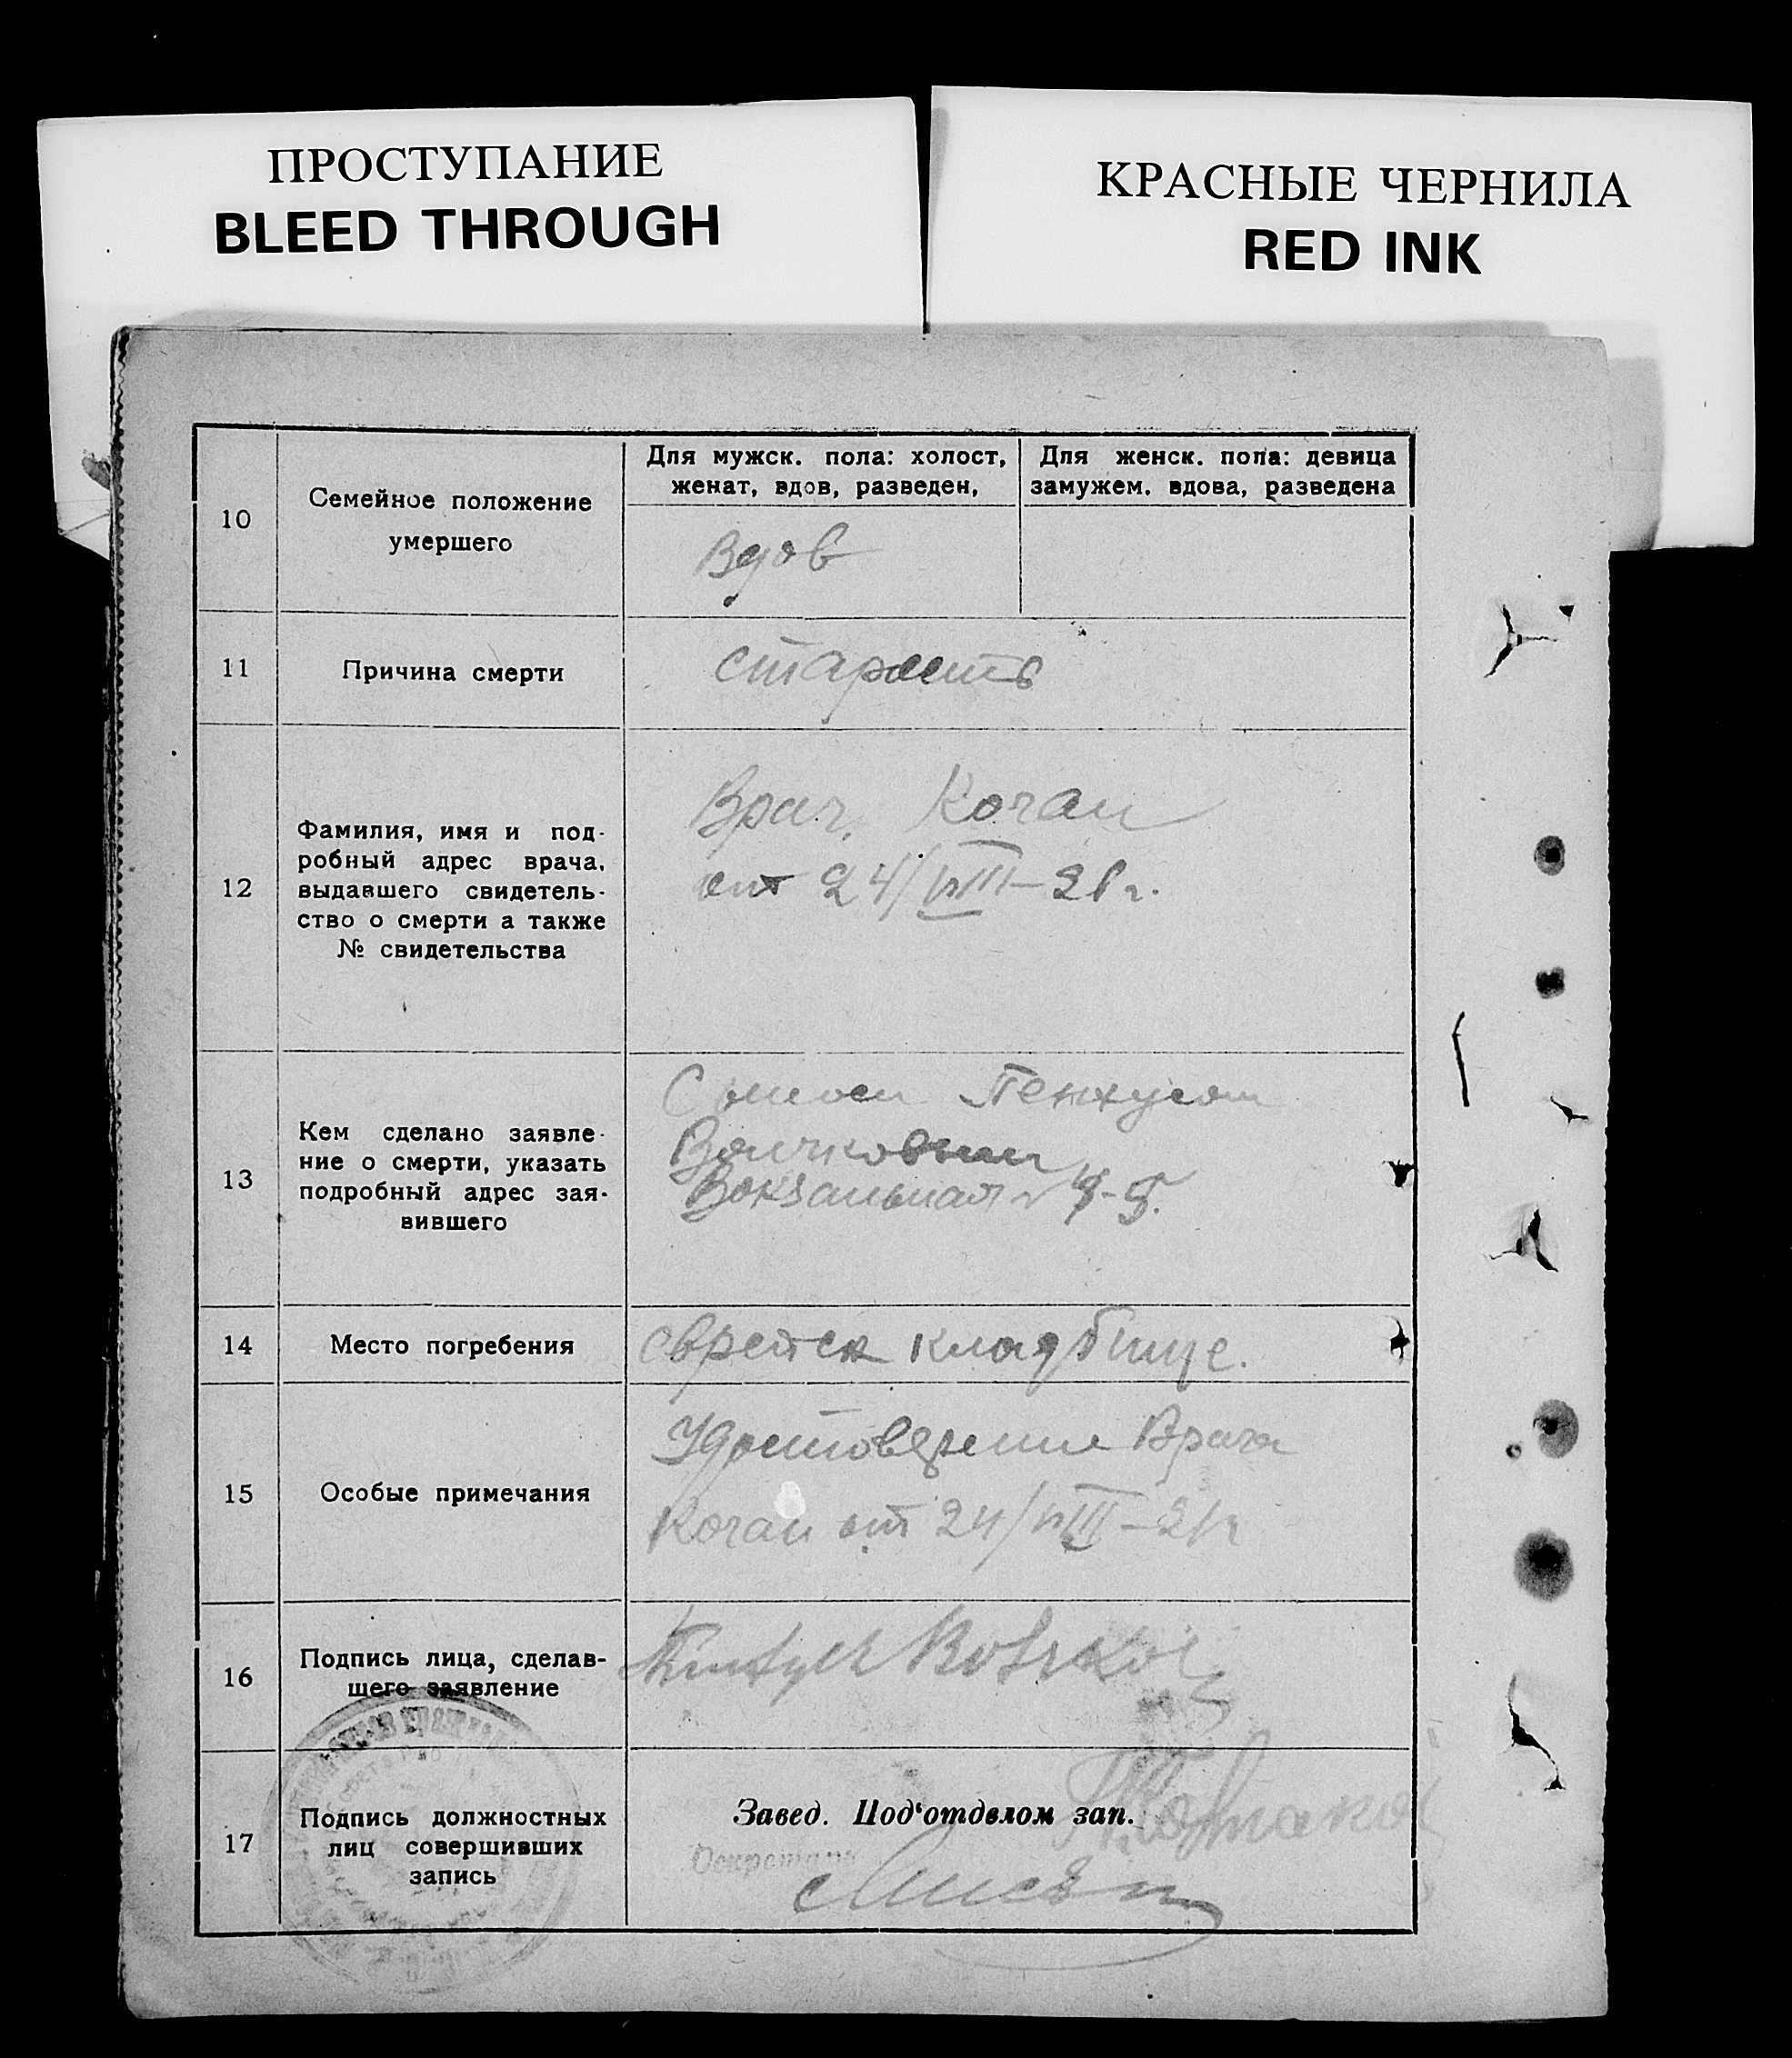 ПРОСТУПАНИЕ
BLEED THROUGH
КРАСНЫЕ ЧЕРНИЛА
RED INK
10
Семейное положение
умершего
Для мужск. пола: холост,
женат, вдов, разведен,
Для женск. пола: девица
замужем. вдова, разведена
Вдов
11
Причина смерти
старость
12
Фамилия, имя и под-
робный адрес врача,
выдавшего свидетель-
ство о смерти а также
№ свидетельства
Врач. Коган
от 24/VIII-21г.
13
Кем сделано заявле-
ние о смерти, указать
подробный адрес зая-
вившего
Сыном Пенхусом
Вокзальная
14
Место погребения
еврейск кладбище.
15
Особые примечания
Удостоверение Врача
Коган от 24/VIII-21г
16
Подпись лица, сделав-
шего заявление
17
Подпись должностных
лиц совершивших
запись
Завед. Под‘отделом зап.
Секретарь